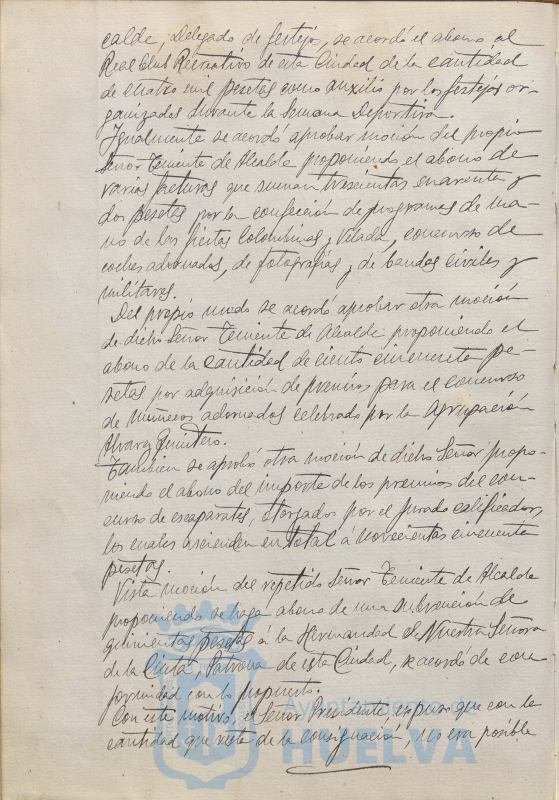 calde, Delegado de festejos, se acordó el abono al
Real Club Recreativo de esta Ciudad de la cantidad
de cuatro mil pesetas como auxilio por los festejos or-
ganizados durante la Semana Deportiva.
Igualmente se acordó aprobar moción del propio
Señor Teniente de Alcalde proponiendo el abono de
varias facturas que suman trescientas cuarenta y
dos pesetas por la confección de programas de ma-
no de las fiestas Colombinas, Velada, concurso de
coches adornados, de fotografías y de bandas civiles y
militares.
Del propio modo se acordó aprobar otra moción
de dicho Señor Teniente de Alcalde proponiendo el
abono de la cantidad de ciento cincuenta pe-
setas por adquisición de premios para el concurso
de muñecos adornados celebrado por la Agrupación
Alvarez Quintero.
También se aprobó otra moción de dicho Señor propo-
niendo el abono del importe de los premios del con-
curso de escaparates, otorgados por el Jurado calificador,
los cuales ascienden en total á novecientas cincuenta
pesetas.
Vista moción del repetido Señor Teniente de Alcalde
proponiendo se haga abono de una subvención de
quinientas pesetas á la Hermandad de Nuestra Señora
de la Cinta, Patrona de esta Ciudad, se acordó de con-
formidad con lo propuesto.
Con este motivo, el Señor Presidente, expuso que con la
cantidad que resta de la consignación, no era posible
Ayuntamiento de
HUELVA